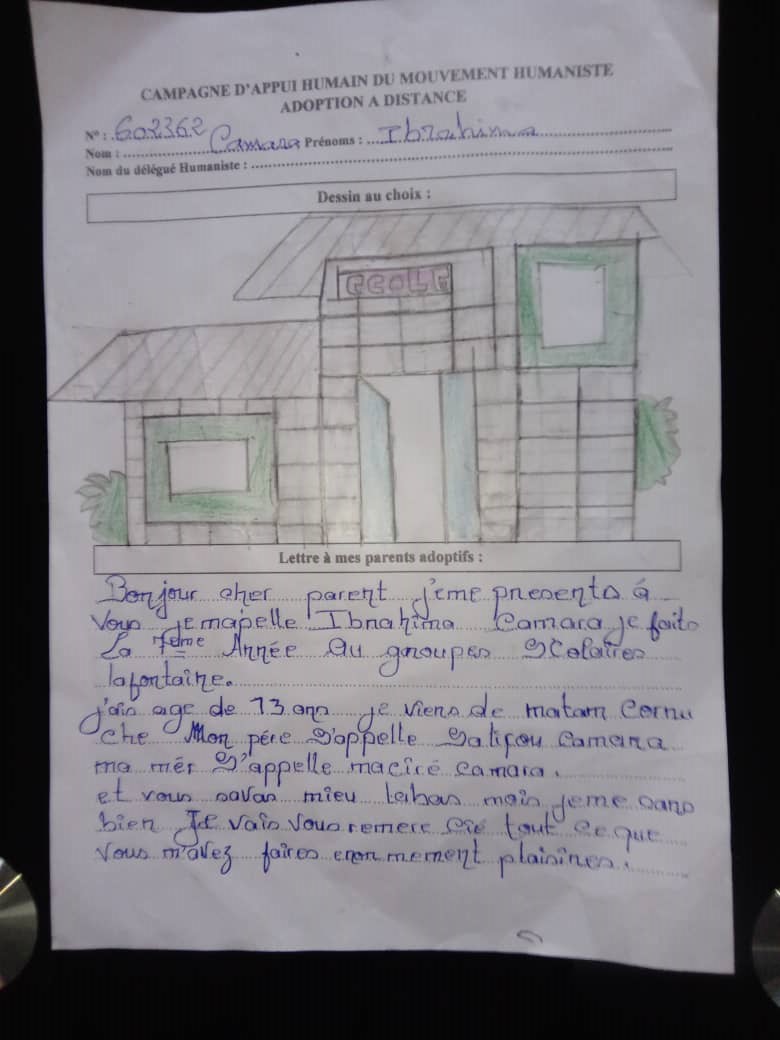 CAMPAGNE D'APPUI HUMAIN DU MOUVEMENT HUMANISTE
ADOPTION A DISTANCE
N° : 602362
Nom : Camara Prénoms : Ibrahima
Nom du délégué Humaniste :
Dessin au choix :
ECOLE
Lettre à mes parents adoptifs :
Bonjour cher parent j'eme presents à
Vous jemapelle Ibrahima Camara je faits
La 7eme Année Au groupes Scolaires
lafontaine.
j'ais age de 13 ans je viens de matam Cornu
che Mon pére S'appelle Salifou Camara
ma mér S'appelle maciré camara.
et vous savas mieu labas mois jeme sans
bien Je vais vous remere cié tout ce que
vous m'avez faires enormement plaisires.